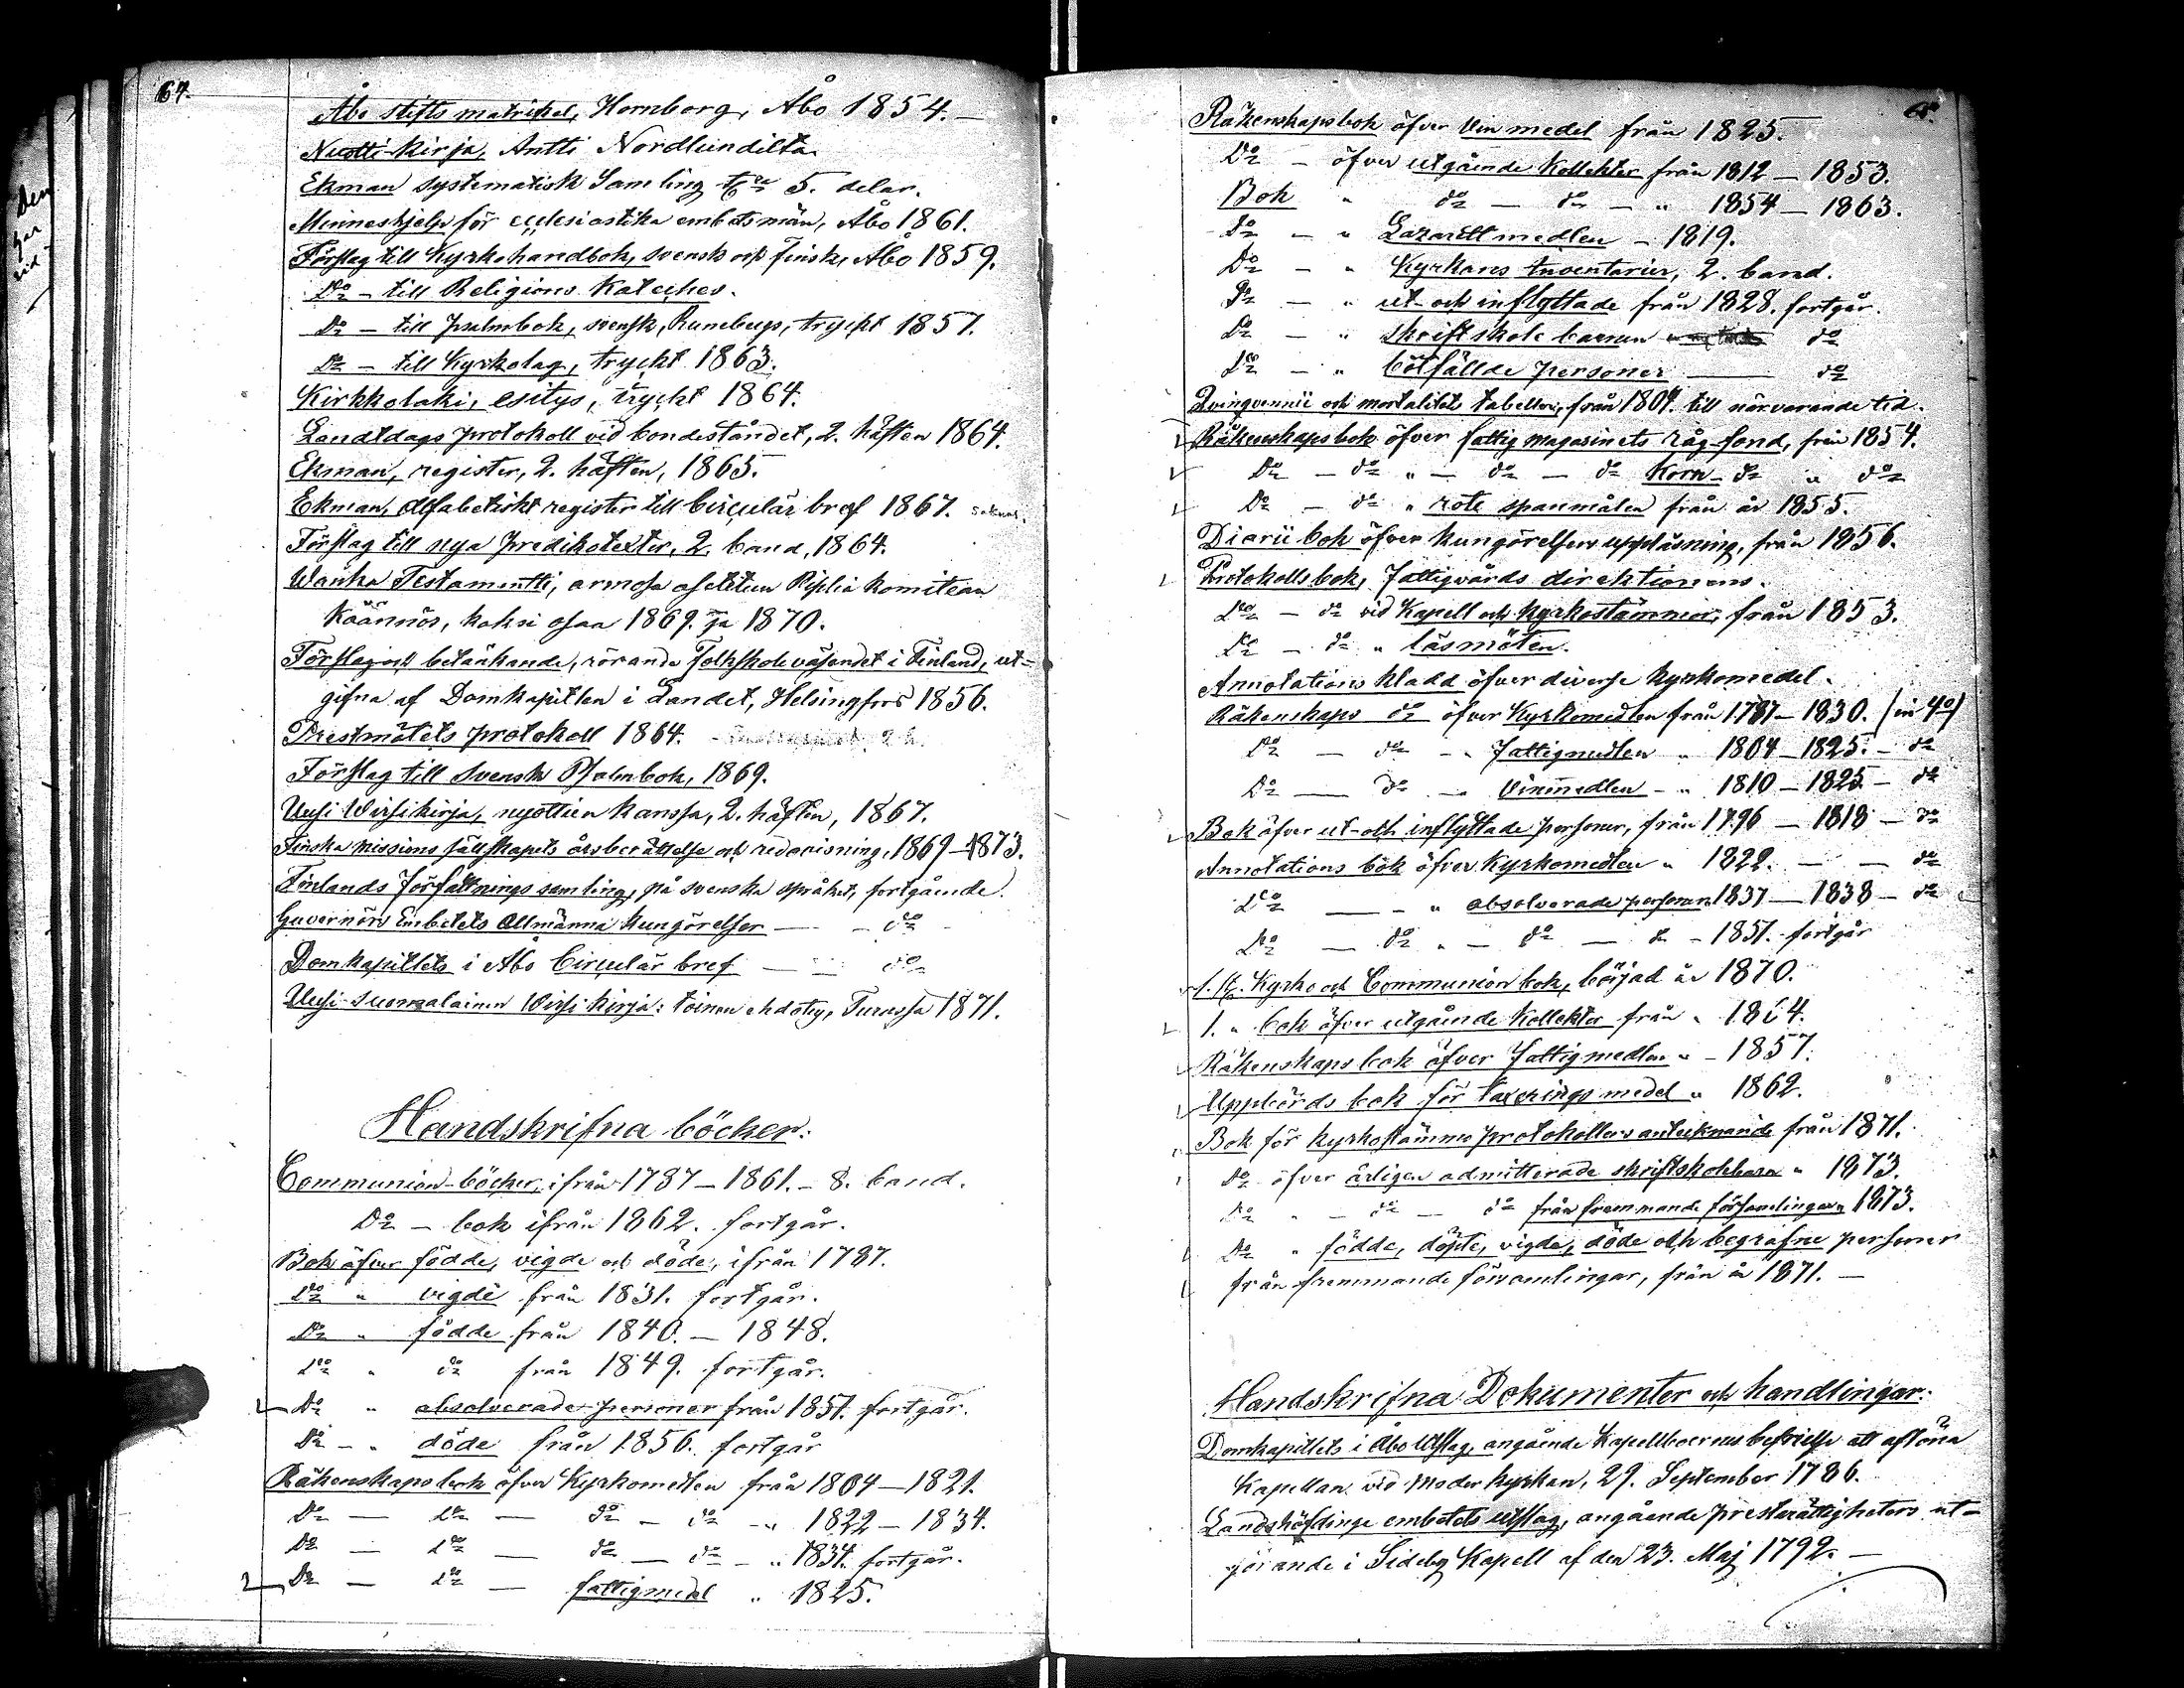 64.
Åbo stifts matrikel, Hornborg, Åbo 1854. —
Nuotti-kirja, Antti Nordlundilta.
Ekman systematisk Samling 5. delar.
Minneshjelp för ecclesiastika embetsmän, Åbo 1861.
Förslag till Kyrkohandbok, svensk och finsk, Åbo 1859.
Do — till Religions Kateches.
Do — till psalmbok, svensk, Runebergs, tryckt 1857.
Do — till Kyrkolag, tryckt 1863.
Kirkkolaki, esitys, tryckt 1864.
Landtdags protokoll vid bondeståndet, 2. häften 1864.
Ekman, register, 2. häften, 1865.
Ekman, Alfabetiskt register till Circulär bref 1867. saknas.
Förslag till nya predikotexter, 2. band, 1864.
Wanha Testamentti, armosa asetetun Piplia komitean
Käännös, kaksi osaa 1869. ja 1870.
Förslag och betänkande, rörande Folkskoleväsendet i Finland, ut-
gifna af Domkapitlen i Landet, Helsingfors 1856.
Prestmötets protokoll 1864.
Förslag till svensk Psalmbok, 1869.
Uusi Wirsikirja, nyottien kanssa, 2. häften, 1867.
Finska missions sällskapets årsberättelse och redovisning, 1869–1873.
Finlands författnings samling, på svenska språket, fortgående.
Guvernörs Embetets Allmänna kungörelser — — do
Domkapitlets i Åbo Circulär bref — — do
Uusi Suomalainen Wirsi-kirja: toinen ehdotus, Turussa 1871.
Handskrifna böcker:
Communion-böcker, ifrån 1787 – 1861. – 8. band.
Do — bok ifrån 1862. fortgår.
Bok öfver födde, vigde och döde, ifrån 1787.
Do " vigde från 1831. fortgår.
Do " födde från 1840. — 1848.
Do " do från 1849. fortgår.
Do " absolverade personer från 1857. fortgår.
Do — " döde från 1856. fortgår
Räkenskapsbok öfver Kyrkomedlen från 1804 — 1821.
Do — Do — do — do — " 1822 — 1834.
Do — Do — do — do — " 1834. fortgår.
Do — Do — fattigmedel " 1825.
65.
Räkenskapsbok öfver Vin medel från 1825.
Do — öfver utgående Kollekter från 1812 — 1853.
Bok " do — do — " 1854 — 1863.
Do — " Lazarettmedlen — 1819.
Do — " Kyrkans Inventarier, 2. band.
Do — " ut- och inflyttade från 1828. fortgår.
Do — " skriftskole barnen do
Do — " botfällde personer — do
Quinquennii och mortalitets tabeller, från 1804. till närvarande tid.
Räkenskapsbok öfver fattig magasinets råg-fond, från 1854.
Do — do " — do — do Korn- do " do
Do — do " rote spanmålen från år 1855.
Diarii bok öfver kungörelsers uppläsning, från 1856.
Protokolls bok, Fattigvårds direktionens.
Do — do vid Kapell och kyrkostämmor, från 1853.
Do — do " läsmöten.
Annotations kladd öfver diverse kyrkomedel.
Räkenskaps do öfver Kyrkomedlen från 1787 — 1830. (in 4o)
Do — do — " Fattigmedlen " 1804 — 1825. — do
Do — do — Vinmedlen — " 1810 — 1825 — do
Bok öfver ut- och inflyttade personer, från 1796 — 1818 — do
Annotations bok öfver Kyrkomedlen " 1822. — — do
Do — — " absolverade personer 1837 — 1838 — do
Do — do " — do — do — 1851. fortgår
1. Kyrko och Communion bok, börjad år 1870.
1. " bok öfver utgående Kollekter från " 1864.
Räkenskaps bok öfver Fattigmedlen " — 1857.
Uppbörds bok för taxerings medel " 1862.
Bok för kyrkostämmo protokollers antecknande från 1871.
Do öfver årligen admitterade skriftskolebarn " 1873.
Do " — do — do från fremmande församlingar " 1873.
Do " födde, döpte, vigde, döde och begrafne personer
från fremmande församlingar, från år 1871. —
Handskrifna Dokumenter och handlingar.
Domkapitlets i Åbo Utslag, angående Kapellboernes befrielse att aflöna
Kapellan vid Moder kyrkan, 29. September 1786.
Landshöfdinge embetets utslag, angående presterättigheters ut-
görande i Sideby Kapell af den 23. Maj 1792. —